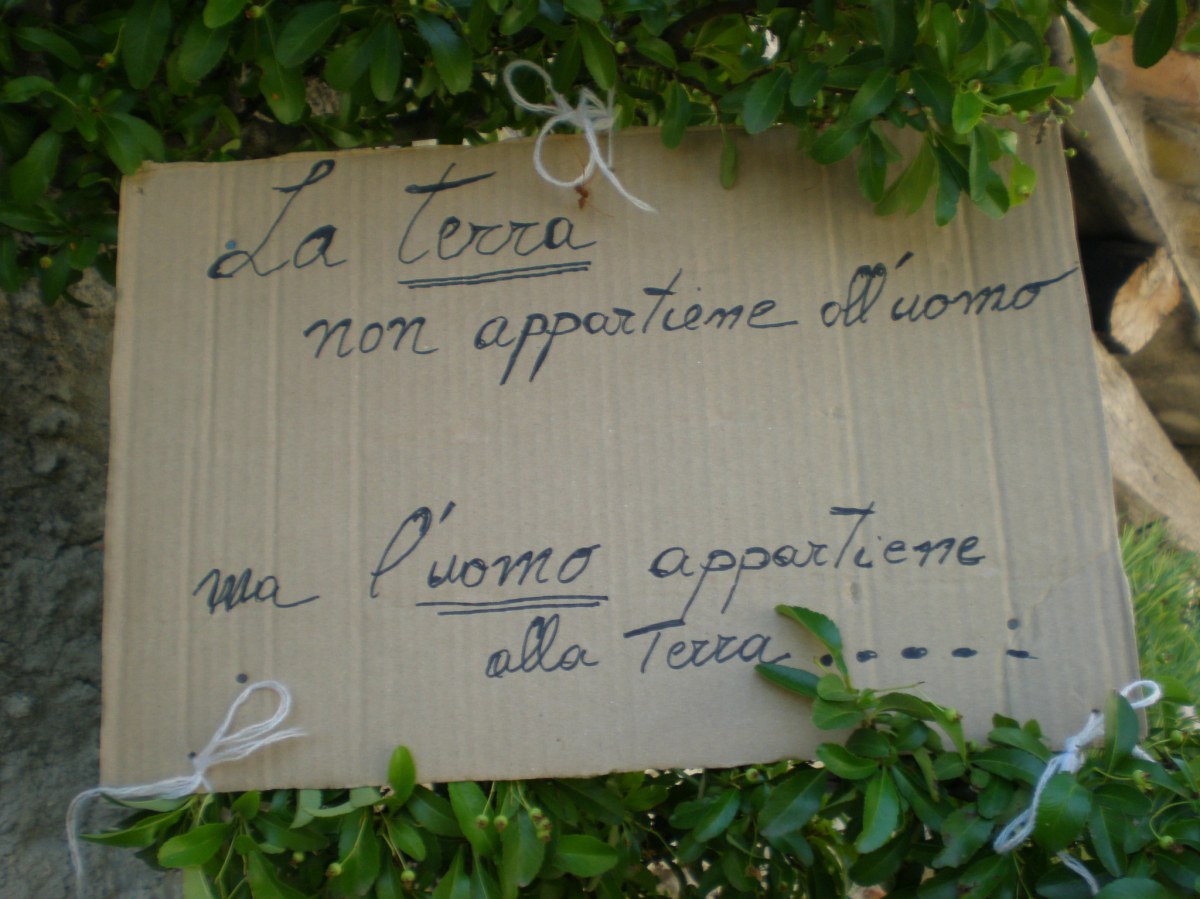 La Terra
non appartiene all'uomo
ma l'uomo appartiene
alla Terra......